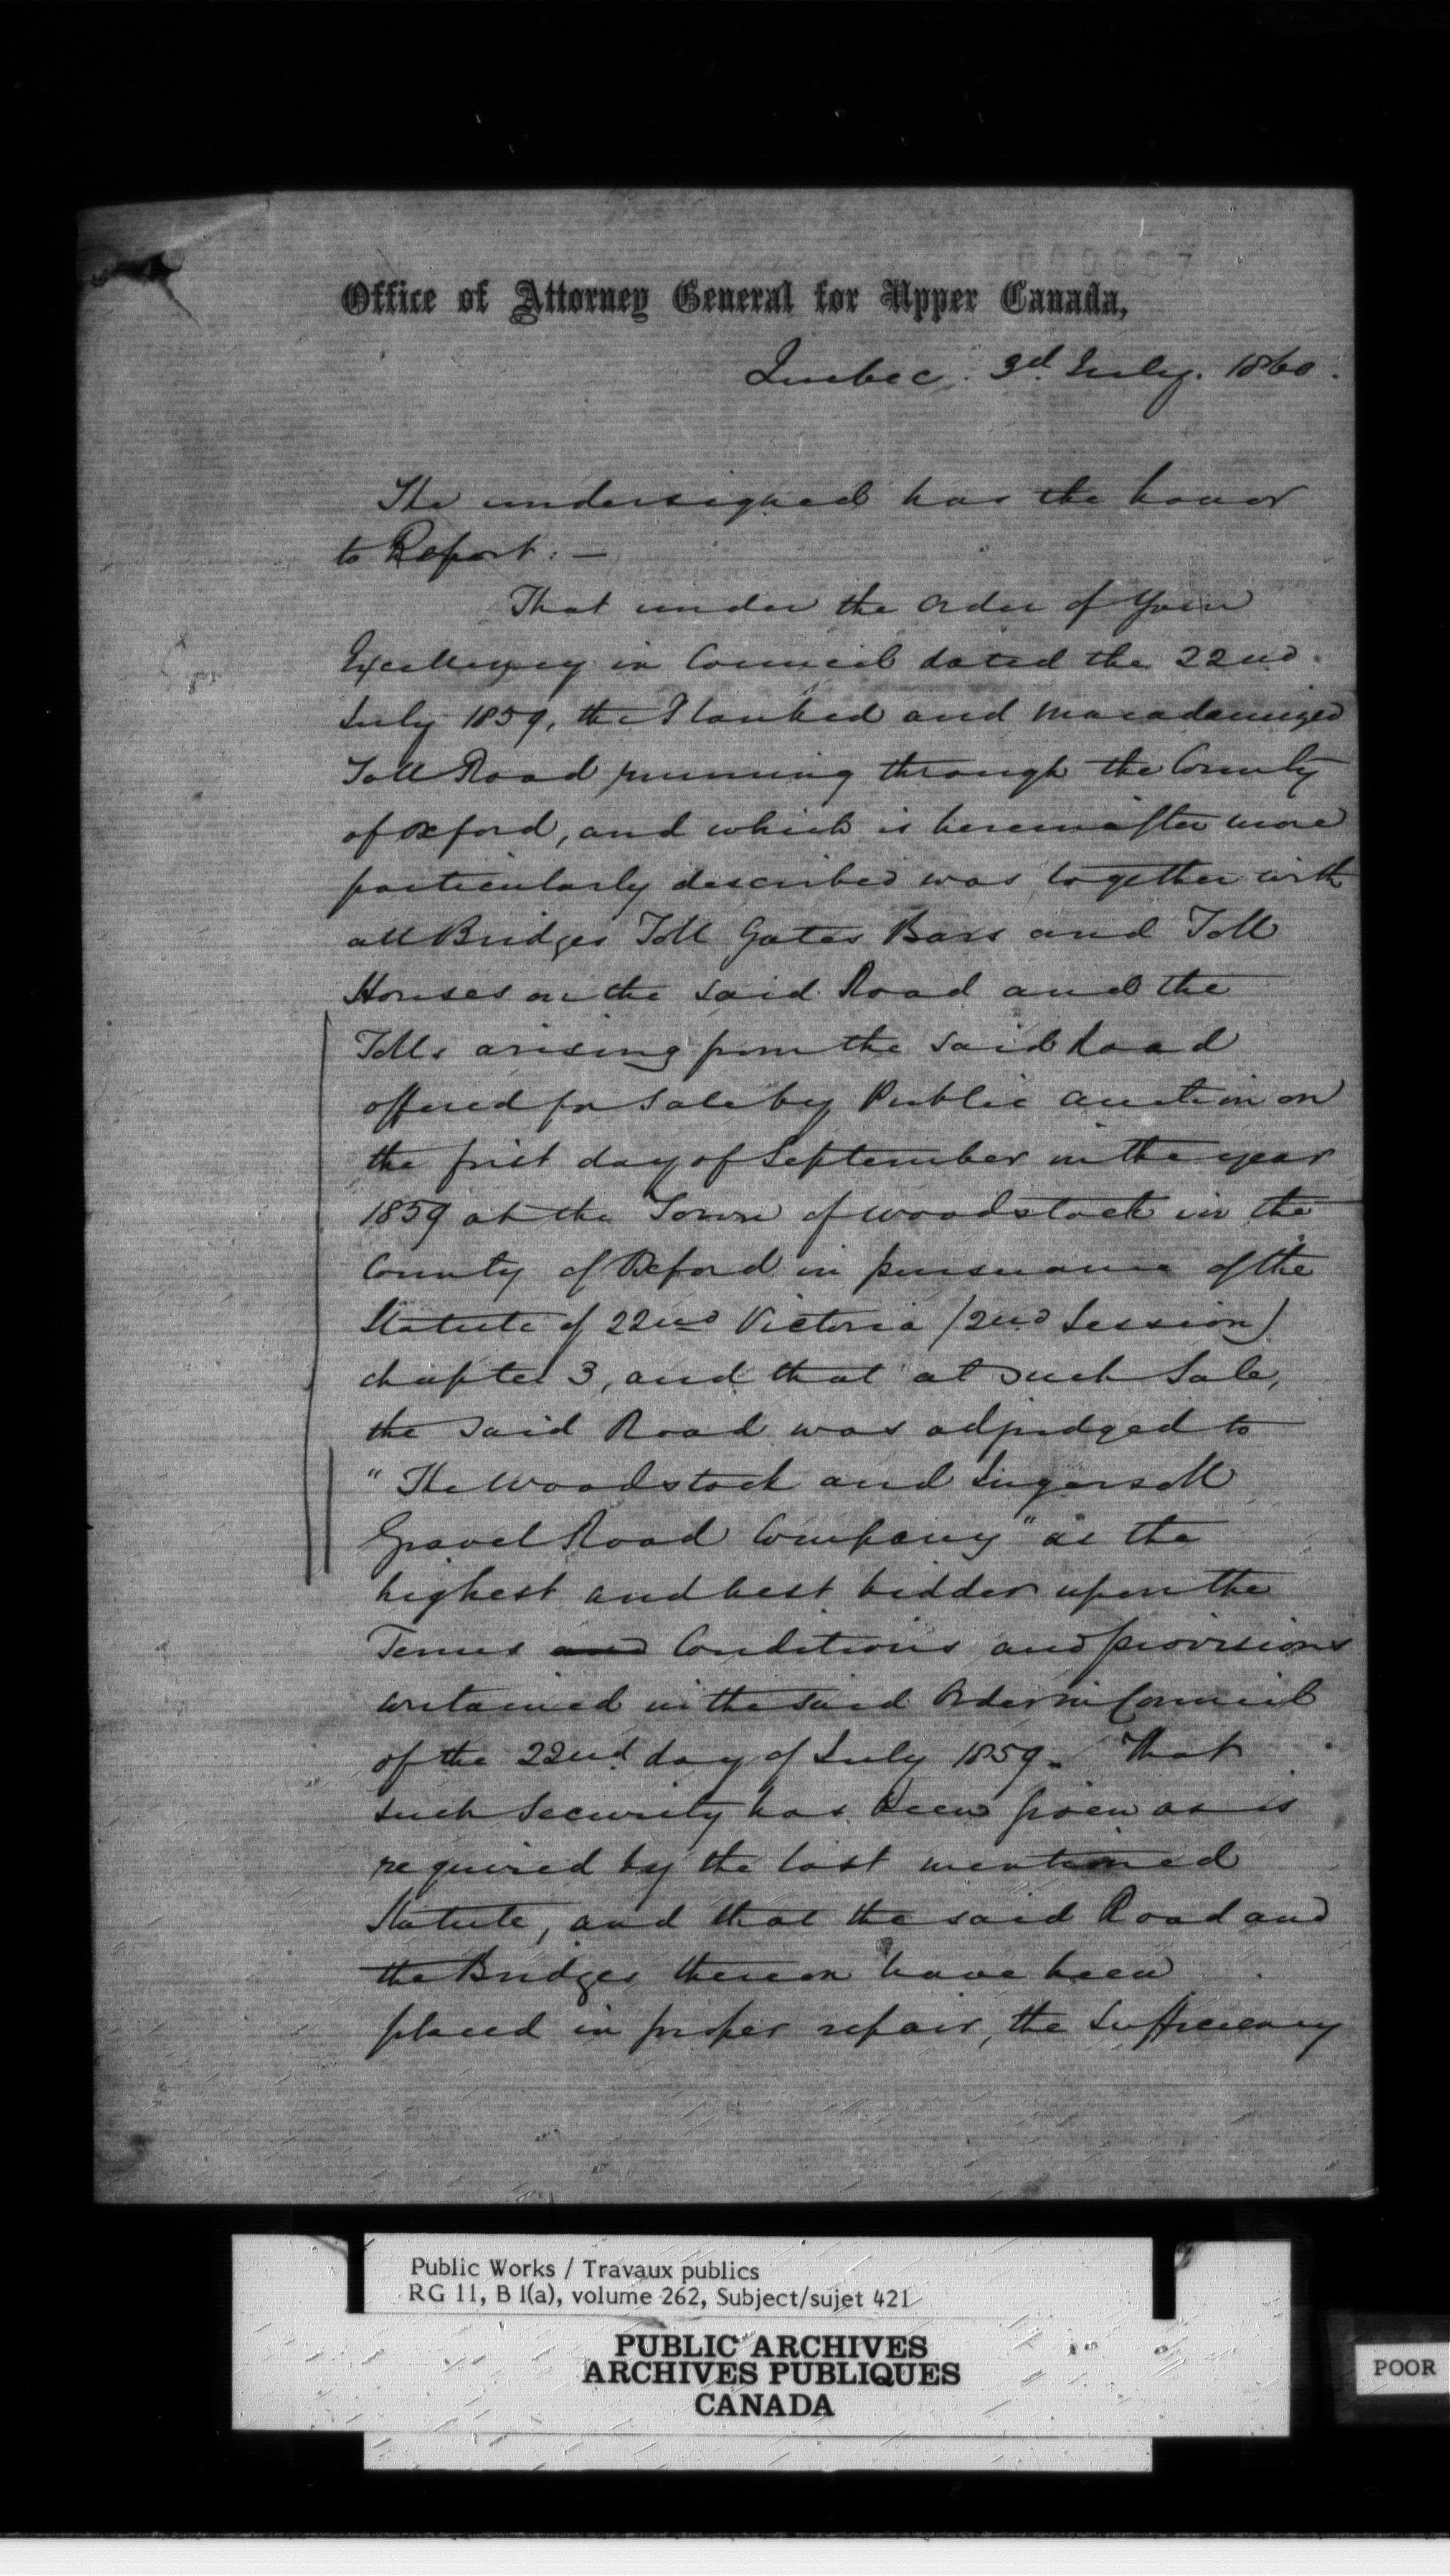 Office of Attorney General for Upper Canada,
Quebec. 3d. July. 1860.
The undersigned has the honor
to Report: —
That under the Order of Your
Excellency in Council dated the 22nd.
July 1859, the Planked and Macadamized
Toll Road running through the County
of Oxford, and which is hereinafter more
particularly described was together with
all Bridges Toll Gates Bars and Toll
Houses on the said Road and the
Tolls arising from the said Road
offered for Sale by Public Auction on
the first day of September in the year
1859 at the Town of Woodstock in the
County of Oxford in pursuance of the
Statute of 22nd Victoria (2nd Session)
chapter 3, and that at such Sale,
the said Road was adjudged to
"The Woodstock and Ingersoll
Gravel Road Company" as the
highest and best bidder upon the
Terms and Conditions and provisions
contained in the said Order in Council
of the 22nd. day of July 1859. That
such Security has been given as is
required by the last mentioned
Statute, and that the said Road and
the Bridges thereon have been
placed in proper repair, the Sufficiency
Public Works / Travaux publics
RG 11, B 1(a), volume 262, Subject/sujet 421
PUBLIC ARCHIVES
ARCHIVES PUBLIQUES
CANADA
POOR